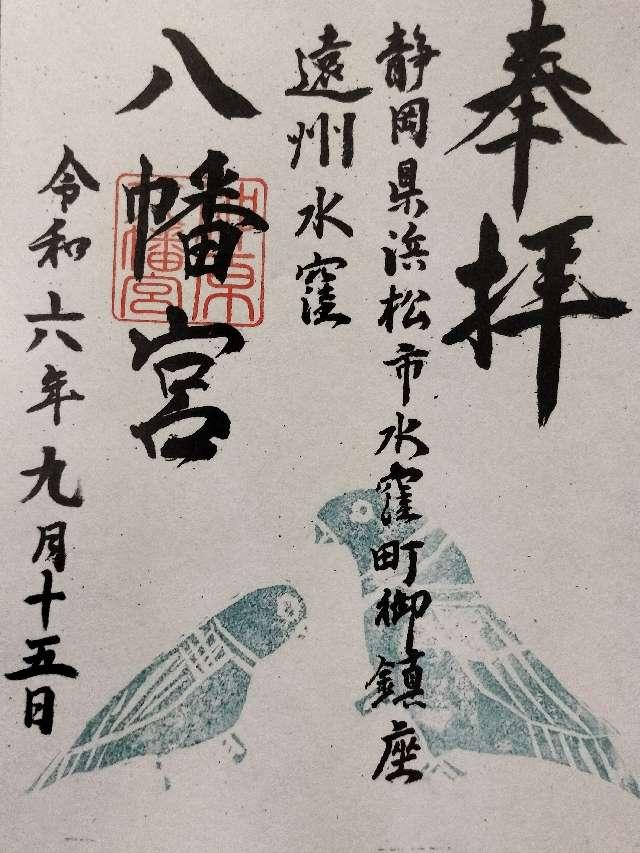 奉拝
静岡県浜松市水窪町御鎮座
遠州水窪
八幡宮
令和六年九月十五日